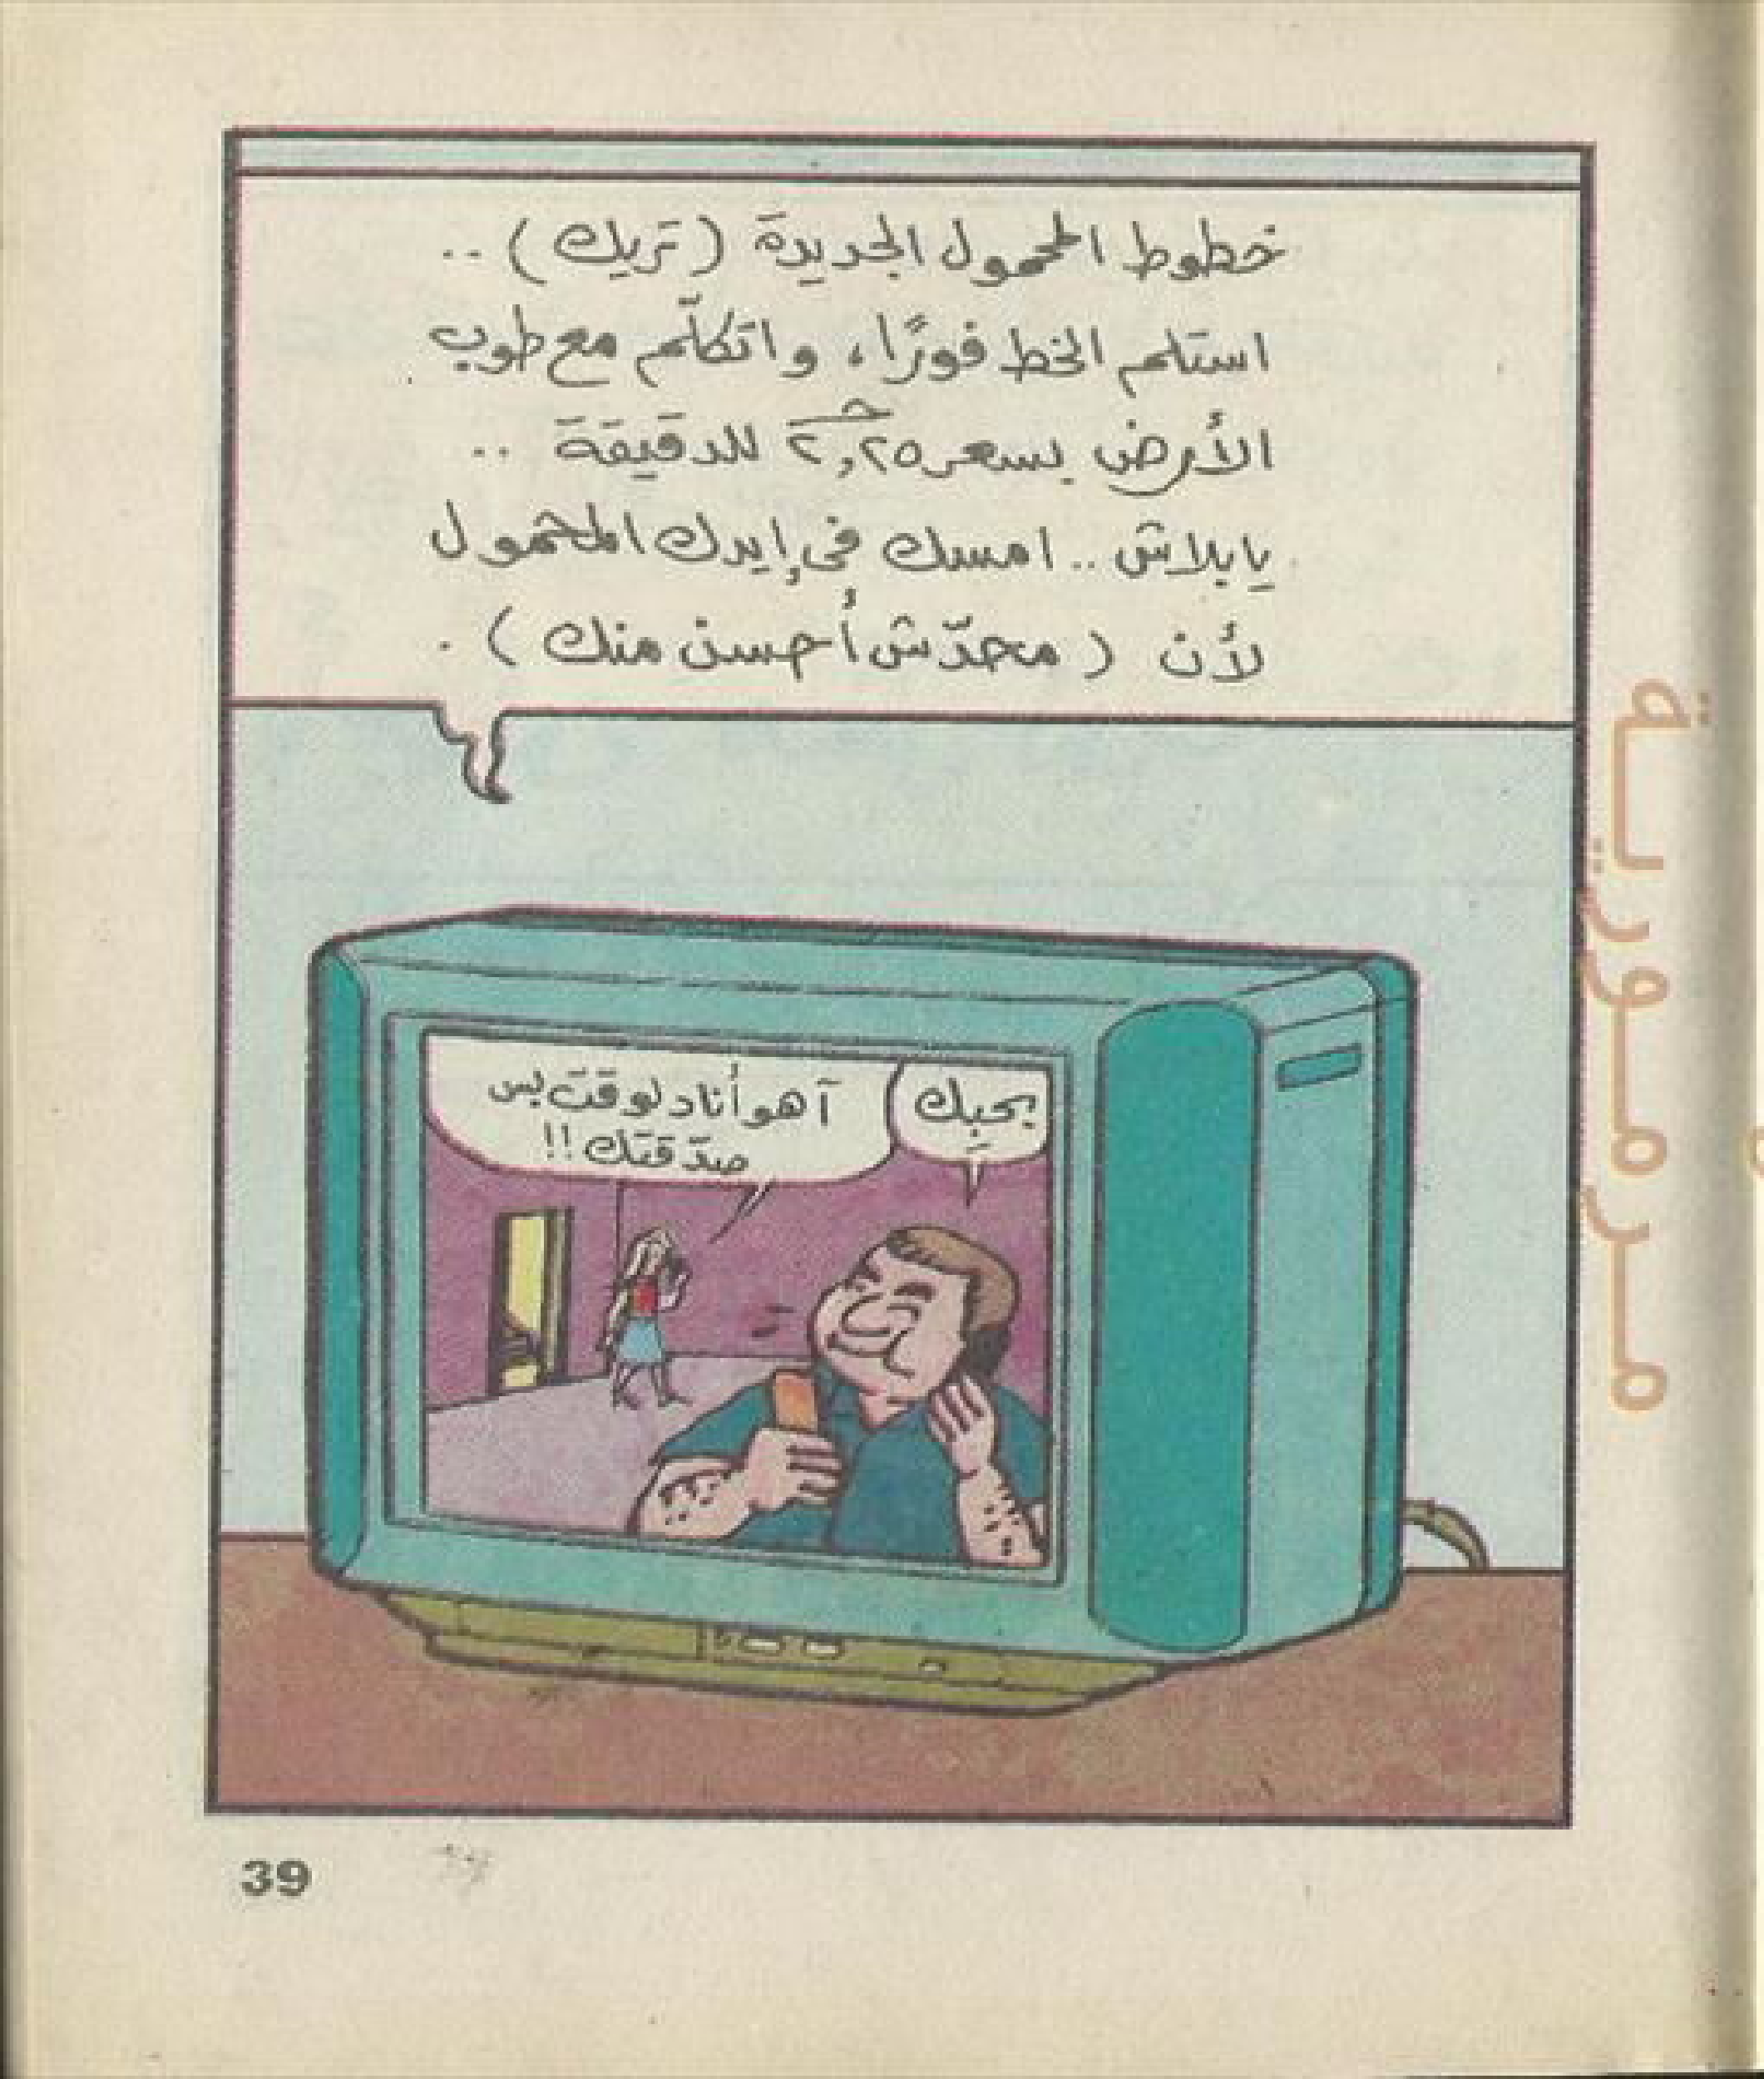 خطوط المحمول الجديدة (تريك) ..
استلم الخط فورًا، واتكلّم مع طوب
الأرض بسعر ٢,٢٥ ج للدقيقة ..
يابلاش .. امسك فى إيدك المحمول
لأن (محدّش أحسن منك) .
بحبِك
آهو أنا دلوقت بس
صدّقتك !!
مرمورية
39